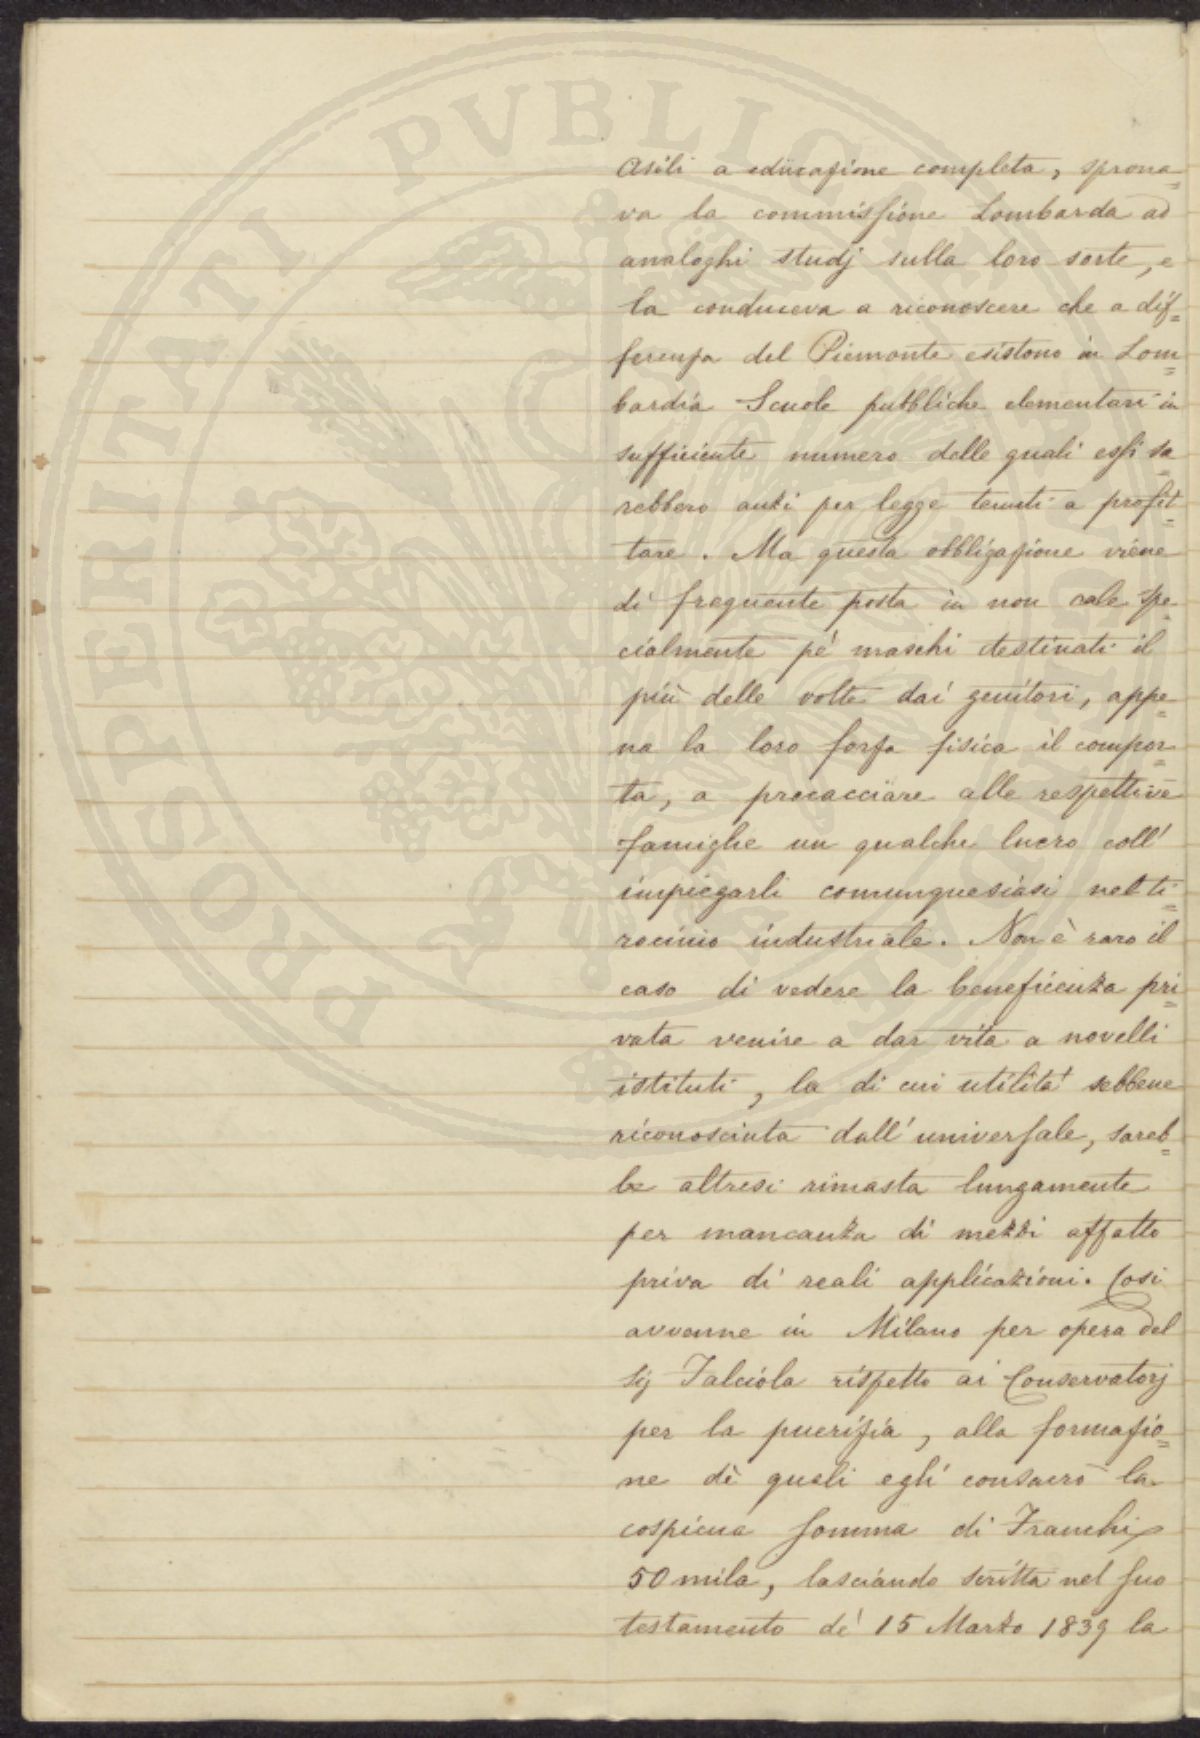 PROSPERITATI PVBLICAE
asili a educazione completa, sprona=
va la commissione Lombarda ad
analoghi studj sulla loro sorte, e
la conduceva a riconoscere che a dif=
ferenza del Piemonte esistono in Lom=
bardia Scuole pubbliche elementari in
sufficiente numero delle quali essi sa=
rebbero anzi per legge tenuti a profit=
tare. Ma questa obbligazione viene
di frequente posta in non cale spe=
cialmente pe' maschi destinati il
più delle volte dai genitori, appe=
na la loro forza fisica il compor=
ta, a procacciare alle respettive
famiglie un qualche lucro coll'
impiegarli comunquesiasi nel ti=
rocinio industriale. Non è raro il
caso di vedere la beneficenza pri=
vata venire a dar vita a novelli
istituti, la di cui utilità sebbene
riconosciuta dall'universale, sareb=
be altresi rimasta lungamente
per mancanza di mezzi affatto
priva di reali applicazioni. Cosi
avvenne in Milano per opera del
Sig Falciola rispetto ai Conservatorj
per la puerizia, alla formazio=
ne dè quali egli consacrò la
cospicua somma di Franchi
50 mila, lasciando scritta nel suo
testamento de' 15 Marzo 1839 la